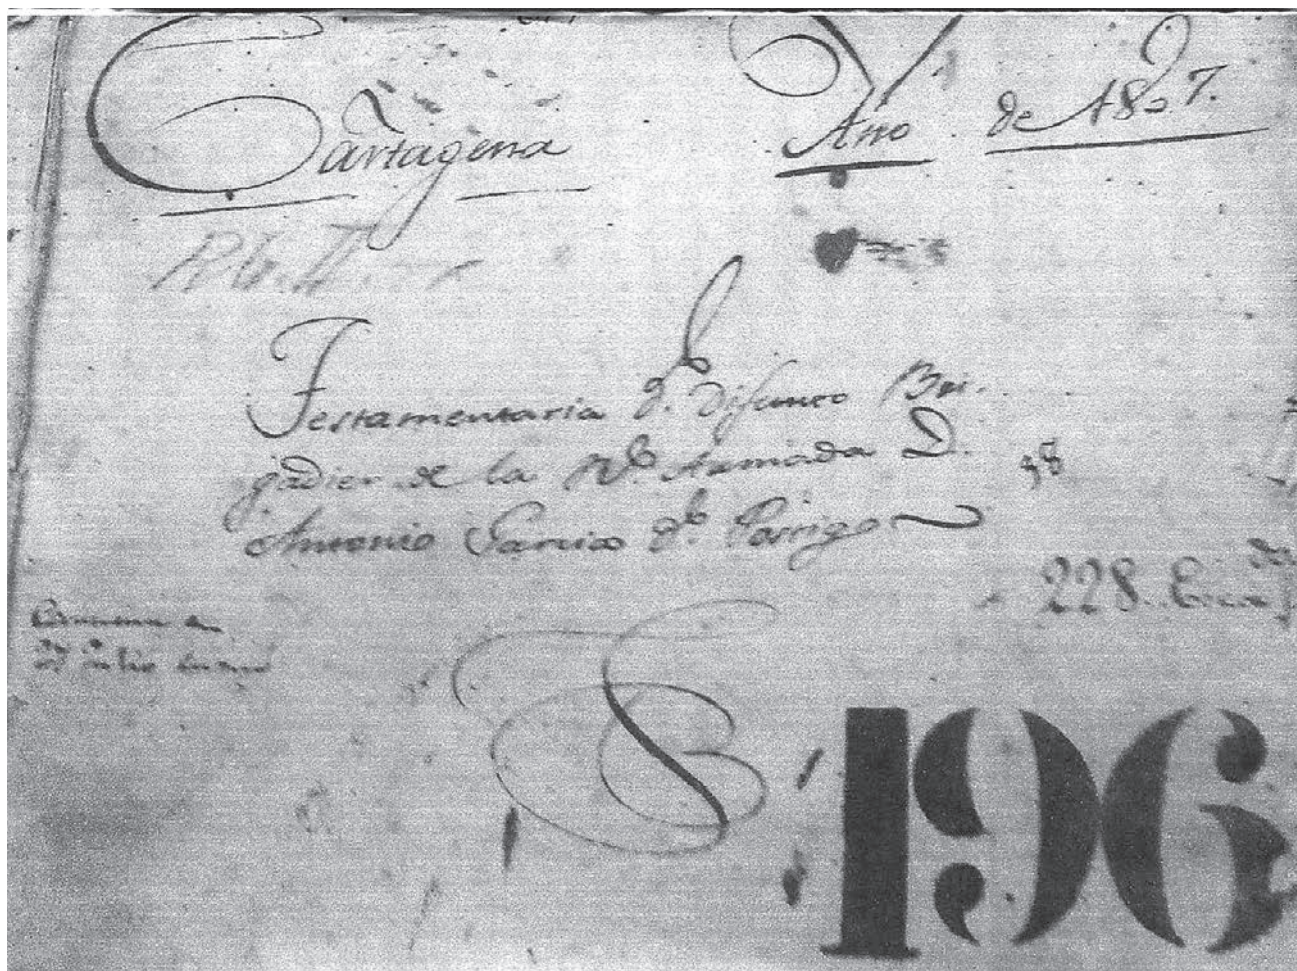 Cartagena Año de 1807.
Testamentaria d.l difunto Bri-
gadier de la R.l Armada D.
Antonio Garcia d.l Postigo
228
196